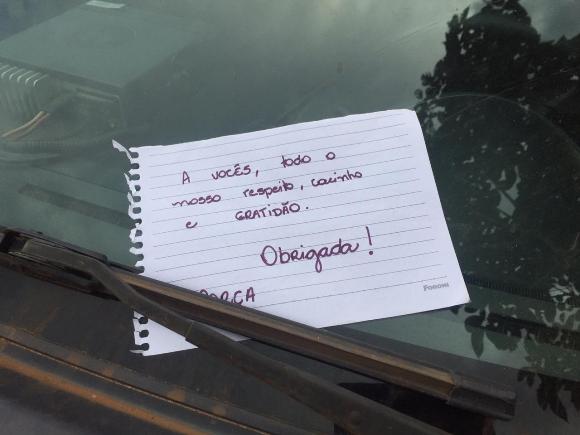 A vocês, todo o
nosso respeito, carinho
e GRATIDÃO.
Obrigada!
FORONI